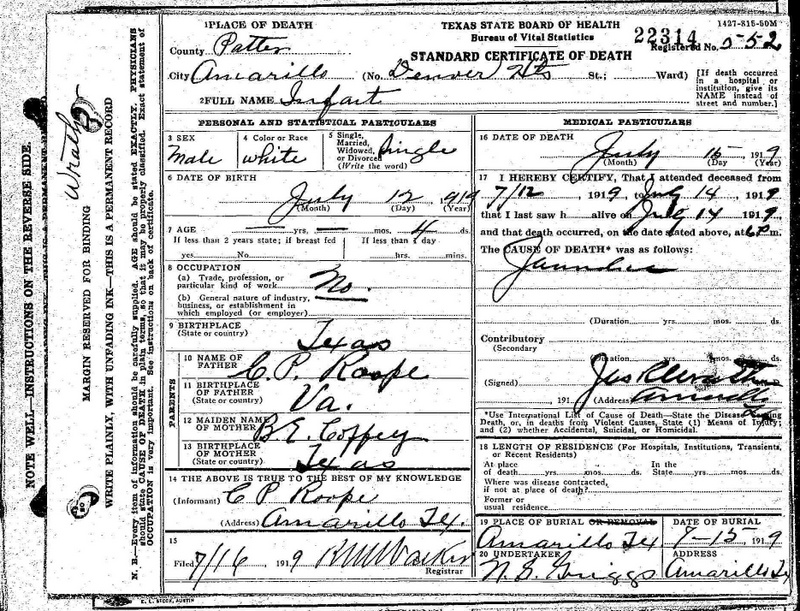 1427-815-50M
1 PLACE OF DEATH
TEXAS STATE BOARD OF HEALTH
Bureau of Vital Statistics
22314
STANDARD CERTIFICATE OF DEATH
Registered No. 552
County Potter
City Amarillo (No. Denver Hts St.; Ward)
[If death occurred in a hospital or institution, give its NAME instead of street and number.]
2 FULL NAME Infant
PERSONAL AND STATISTICAL PARTICULARS
3 SEX
Male
4 Color or Race
White
5 Single, Married, Widowed, or Divorced (Write the word)
Single
6 DATE OF BIRTH
July 12 1919
(Month) (Day) (Year)
7 AGE — yrs. — mos. 4 ds.
If less than 2 years state; if breast fed
If less than 1 day
yes No. hrs. mins.
8 OCCUPATION
(a) Trade, profession, or particular kind of work No.
(b) General nature of industry, business, or establishment in which employed (or employer)
9 BIRTHPLACE
(State or country) Texas
PARENTS
10 NAME OF FATHER C. P. Roope
11 BIRTHPLACE OF FATHER
(State or country) Va.
12 MAIDEN NAME OF MOTHER B. E. Coffey
13 BIRTHPLACE OF MOTHER
(State or country) Texas
14 THE ABOVE IS TRUE TO THE BEST OF MY KNOWLEDGE
(Informant) C P Roope
(Address) Amarillo Tex.
15
Filed 7/16 1919
Registrar
MEDICAL PARTICULARS
16 DATE OF DEATH
July 15 1919
(Month) (Day) (Year)
17 I HEREBY CERTIFY, That I attended deceased from
7/12 1919, to July 14 1919
that I last saw h alive on July 14 1919
and that death occurred, on the date stated above, at 6 P m.
The CAUSE OF DEATH* was as follows:
Jaundice
(Duration) yrs. mos. ds.
Contributory
(Secondary)
(Duration) yrs. mos. ds.
(Signed)
191 (Address) Amarillo
*Use International List of Cause of Death—State the Disease Causing Death, or, in deaths from Violent Causes, State (1) Means of Injury; and (2) whether Accidental, Suicidal, or Homicidal.
18 LENGTH OF RESIDENCE (For Hospitals, Institutions, Transients, or Recent Residents)
At place of death yrs. mos. ds. In the State yrs. mos. ds.
Where was disease contracted, if not at place of death?
Former or usual residence
19 PLACE OF BURIAL OR REMOVAL
Amarillo Tex
DATE OF BURIAL
7-15 1919
20 UNDERTAKER
N. S. Griggs
ADDRESS
Amarillo Tex
NOTE WELL—INSTRUCTIONS ON THE REVERSE SIDE.
Wrather
MARGIN RESERVED FOR BINDING
WRITE PLAINLY, WITH UNFADING INK—THIS IS A PERMANENT RECORD
N. B.—Every item of information should be carefully supplied. AGE should be stated EXACTLY. PHYSICIANS
should state CAUSE OF DEATH in plain terms, so that it may be properly classified. Exact statement of
OCCUPATION is very important. See instructions on back of certificate.